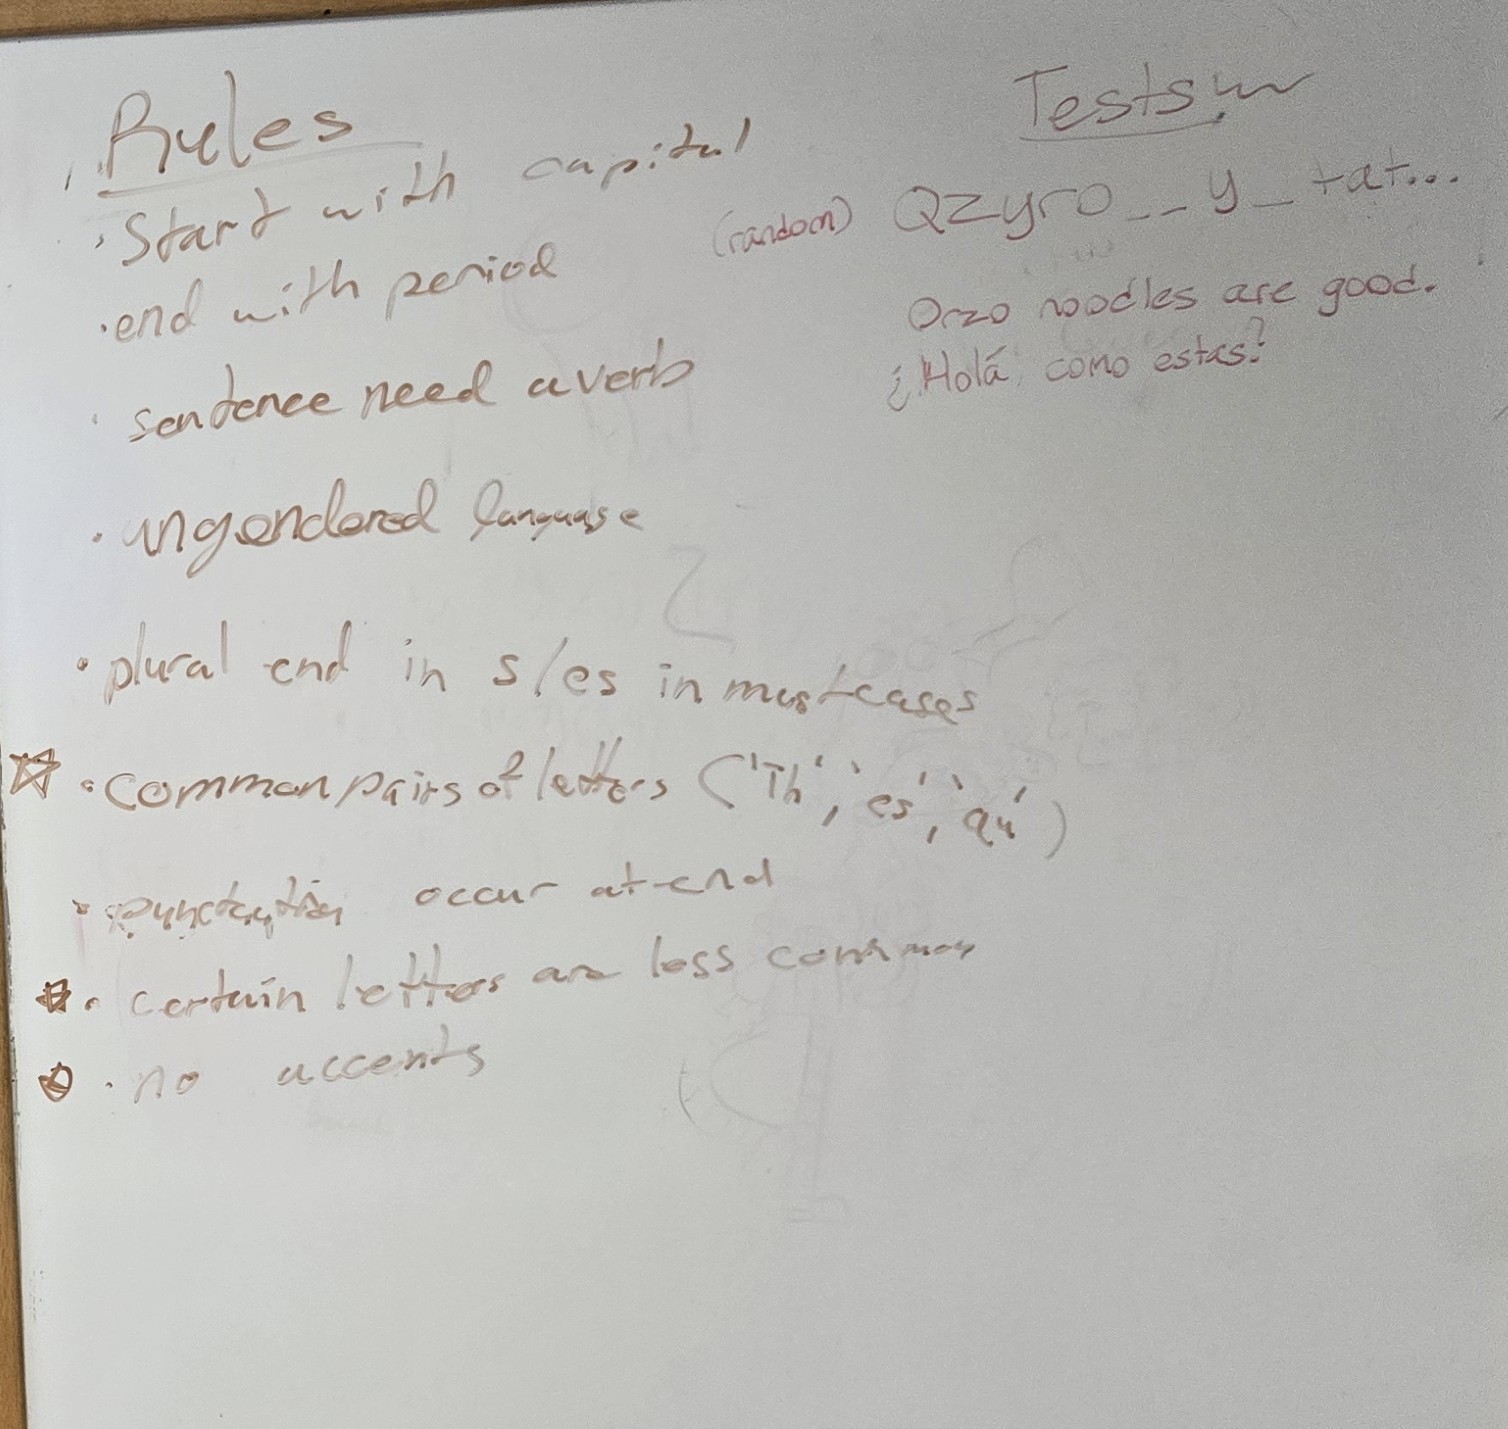 Rules
· Start with capital
· end with period
· sentence need a verb
· ungendered language
· plural end in s/es in most cases
☆ · common pairs of letters ('Th', 'es', 'qu')
· punctuation occur at end
☆ · certain letters are less common
☆ · no accents
Tests
(random) Qzyro__y_tat...
Orzo noodles are good.
¿Holá, como estas?